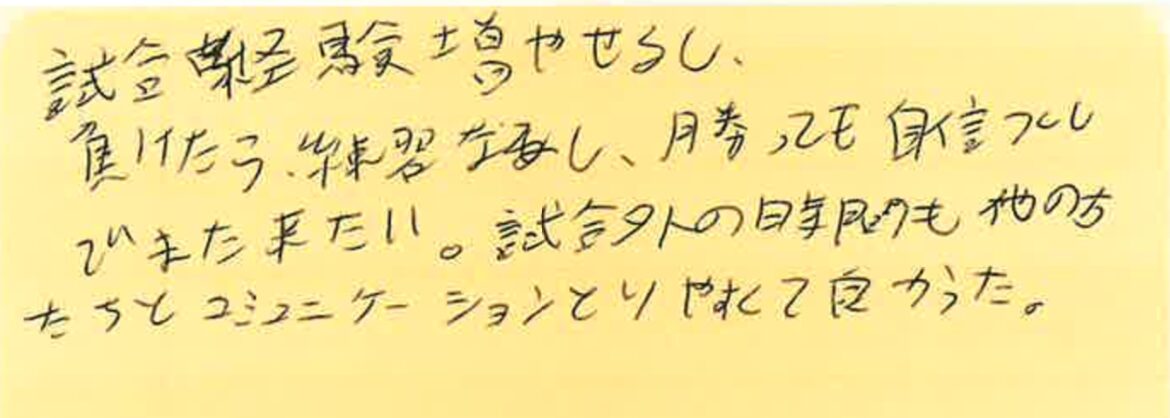 試合経験増やせるし、
負けたら、練習なるし、勝っても自信つくし
びまた来たい。試合外の時間も他の方
たちとコミュニケーションとりやすくて良かった。